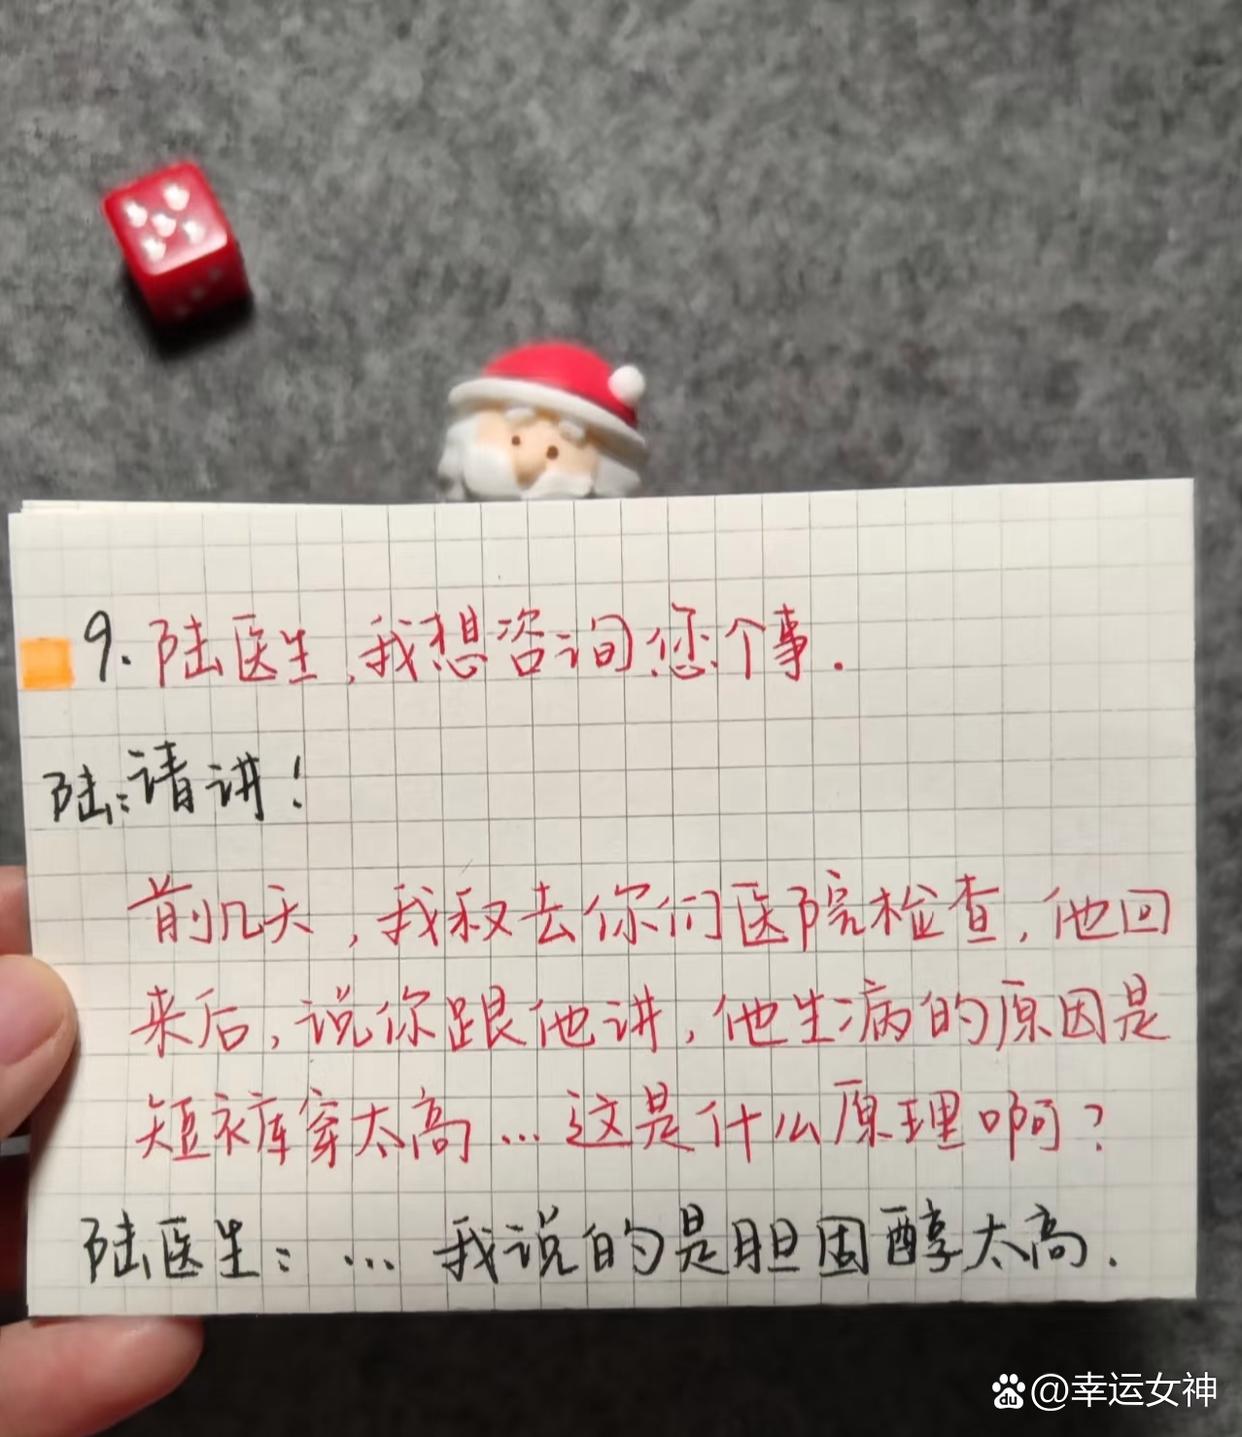 9.陆医生,我想咨询您个事.
陆:请讲!
前几天,我叔去你们医院检查,他回
来后,说你跟他讲,他生病的原因是
短衣库穿太高...这是什么原理啊?
陆医生:...我说的是胆固醇太高.
du @幸运女神